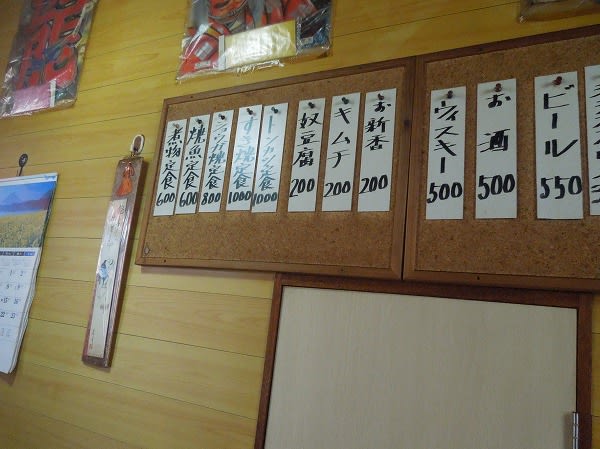 煮物定食 600
焼魚定食 600
ショウガ焼定食 800
すき焼定食 1000
トンカツ定食 1000
奴豆腐 200
キムチ 200
お新香 200
ウィスキー 500
お酒 500
ビール 550